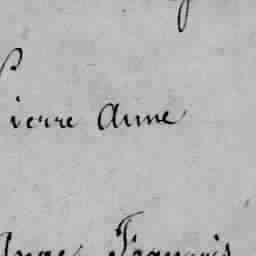 Pierre Anne
François